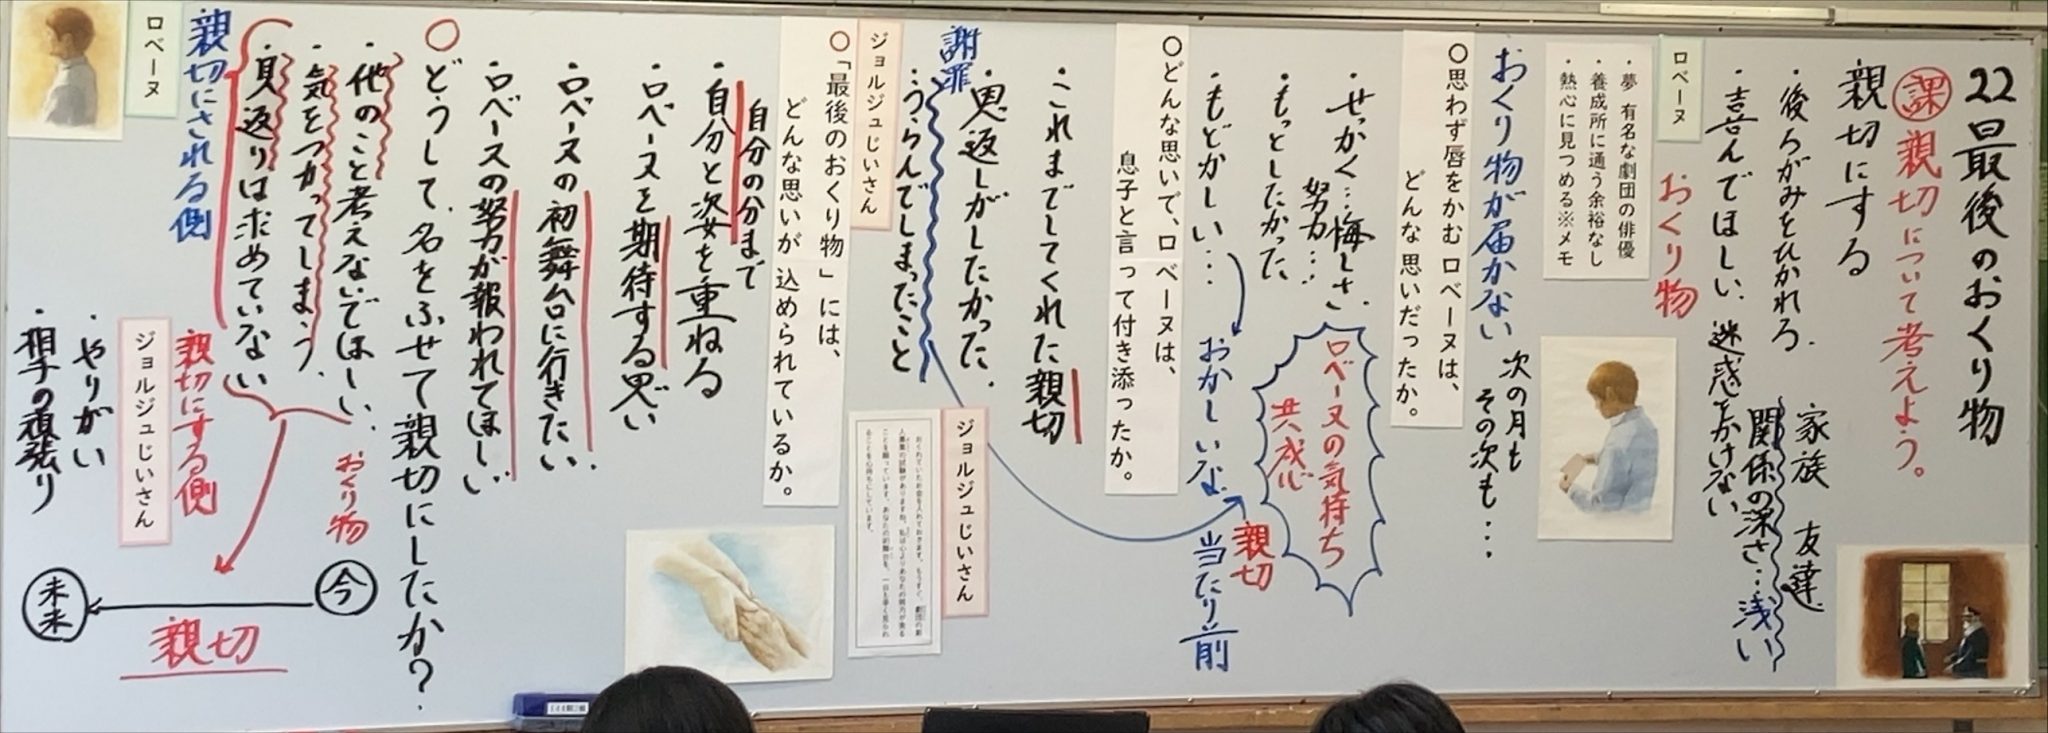 22 最後のおくり物
課 親切について考えよう。
親切にする
・後ろがみをひかれる
・喜んでほしい、迷惑をかけない
家族 友達
関係の深さ…浅い
ロベーヌ
おくり物
・夢 有名な劇団の俳優
・養成所に通う余裕なし
・熱心に見つめる※メモ
おくり物が届かない
次の月も
その次も…
〇思わず唇をかむロベーヌは、
どんな思いだったか。
・せっかく…悔しさ、
努力…
・もっとしたかった
・もどかしい…
おかしいな
当たり前
親切
ロベーヌの気持ち
共感
〇どんな思いで、ロベーヌは、
息子と言って付き添ったか。
・これまでしてくれた親切
・恩返しがしたかった、
・うらんでしまったこと
謝罪
ジョルジュじいさん
ジョルジュじいさん
〇「最後のおくり物」には、
どんな思いが込められているか。
・自分の分まで
自分と姿を重ねる
・ロベーヌを期待する思い
・ロベーヌの初舞台に行きたい、
・ロベーヌの努力が報われてほしい
〇どうして、名をふせて親切にしたか?
・他のこと考えないでほしい、
・気をつかってしまう、
・見返りは求めていない
おくり物
親切にされる側
ロベーヌ
親切にする側
ジョルジュじいさん
・やりがい
・相手の頑張り
今
未来
親切